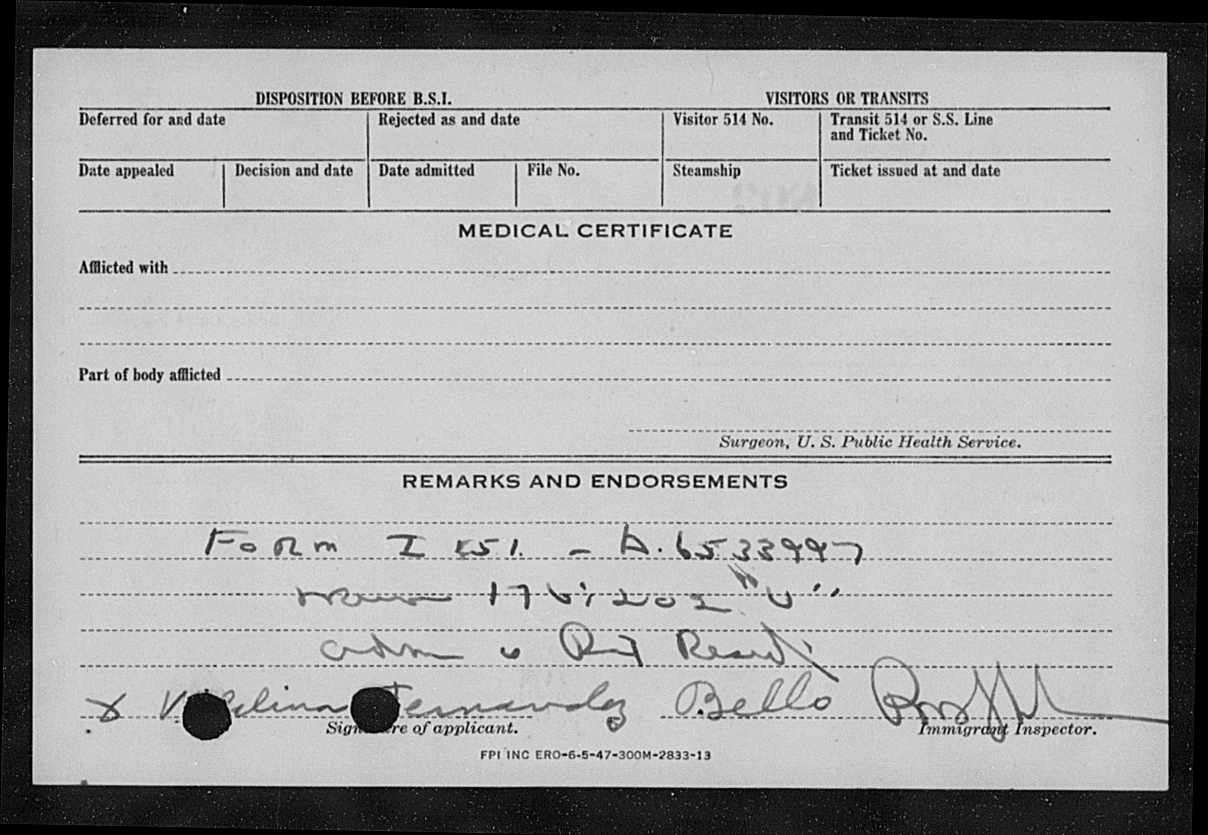 DISPOSITION BEFORE B.S.I.
VISITORS OR TRANSITS
Deferred for and date
Rejected as and date
Visitor 514 No.
Transit 514 or S.S. Line
and Ticket No.
Date appealed
Decision and date
Date admitted
File No.
Steamship
Ticket issued at and date
MEDICAL CERTIFICATE
Afflicted with
Part of body afflicted
Surgeon, U. S. Public Health Service.
REMARKS AND ENDORSEMENTS
Form I 151. - A. 6533997
"U"
X Fernandez Bello
Signature of applicant.
Immigrant Inspector.
FPI INC ERO-6-5-47-300M-2833-13